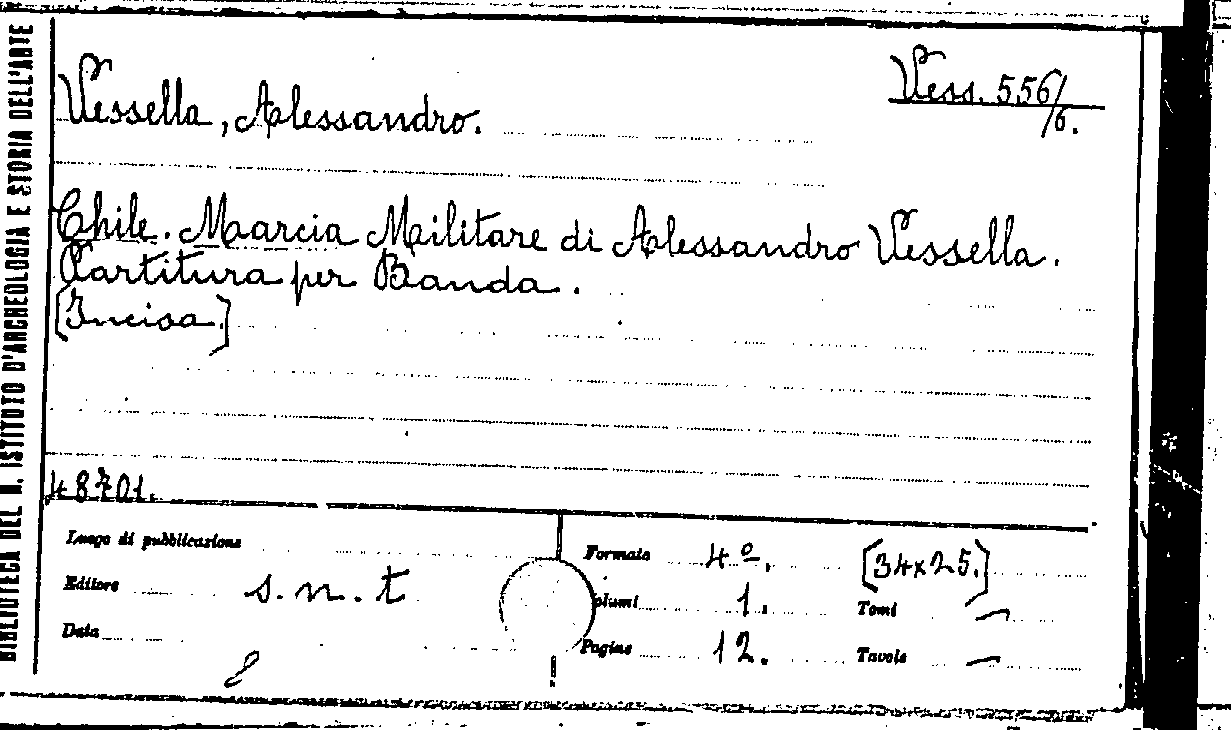 BIBLIOTECA DEL R. ISTITUTO D'ARCHEOLOGIA E STORIA DELL'ARTE
Vessella, Alessandro.
Vess. 556/6.
Chile. Marcia Militare di Alessandro Vessella.
Partitura per Banda.
[Incisa.]
48701.
Luogo di pubblicazione
Editore s.n.t
Data
Formato 4º. [34x25.]
olumi 1. Tomi —
Pagine 12. Tavole —